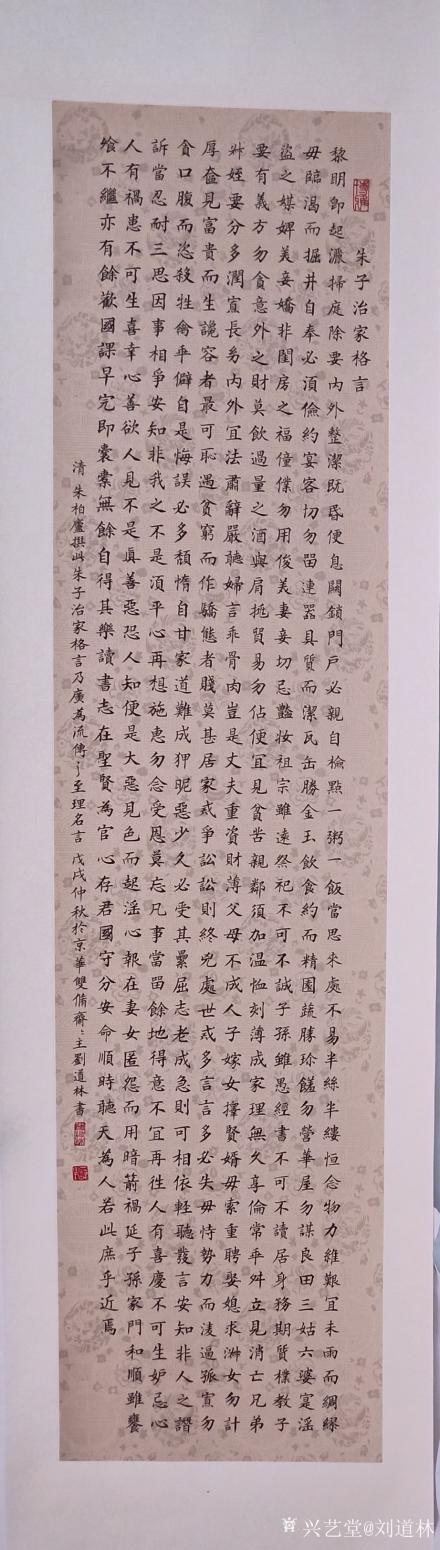 朱子治家格言
黎明即起灑掃庭除要內外整潔既昏便息關鎖門戶必親自檢點一粥一飯當思來處不易半絲半縷恒念物力維艱宜未雨而綢繆
毋臨渴而掘井自奉必須儉約宴客切勿留連器具質而潔瓦缶勝金玉飲食約而精園蔬勝珍饈勿營華屋勿謀良田三姑六婆寔淫
盜之媒婢美妾嬌非閨房之福僮僕勿用俊美妻妾切忌豔妝祖宗雖遠祭祀不可不誠子孫雖愚經書不可不讀居身務期質樸教子
要有義方勿貪意外之財莫飲過量之酒與肩挑貿易勿佔便宜見貧苦親鄰須加温恤刻薄成家理無久享倫常乖舛立見消亡兄弟
叔姪要分多潤寡長幼內外宜法肅辭嚴聽婦言乖骨肉豈是丈夫重資財薄父母不成人子嫁女擇賢婿毋索重聘娶媳求淑女勿計
厚奩見富貴而生諂容者最可恥遇貧窮而作驕態者賤莫甚居家戒爭訟訟則終凶處世戒多言言多必失毋恃勢力而凌逼孤寡勿
貪口腹而恣殺牲禽乖僻自是悔誤必多頹惰自甘家道難成狎昵惡少久必受其累屈志老成急則可相依輕聽發言安知非人之譖
訴當忍耐三思因事相爭安知非我之不是須平心再想施惠勿念受恩莫忘凡事當留餘地得意不宜再往人有喜慶不可生妒忌心
人有禍患不可生喜幸心善欲人見不是真善惡恐人知便是大惡見色而起淫心報在妻女匿怨而用暗箭禍延子孫家門和順雖饔
飧不繼亦有餘歡國課早完即囊橐無餘自得其樂讀書志在聖賢為官心存君國守分安命順時聽天為人若此庶乎近焉
清朱柏廬撰此朱子治家格言乃廣為流傳之至理名言戊戌仲秋於京華雙備齋:主劉道林書
兴艺堂@刘道林